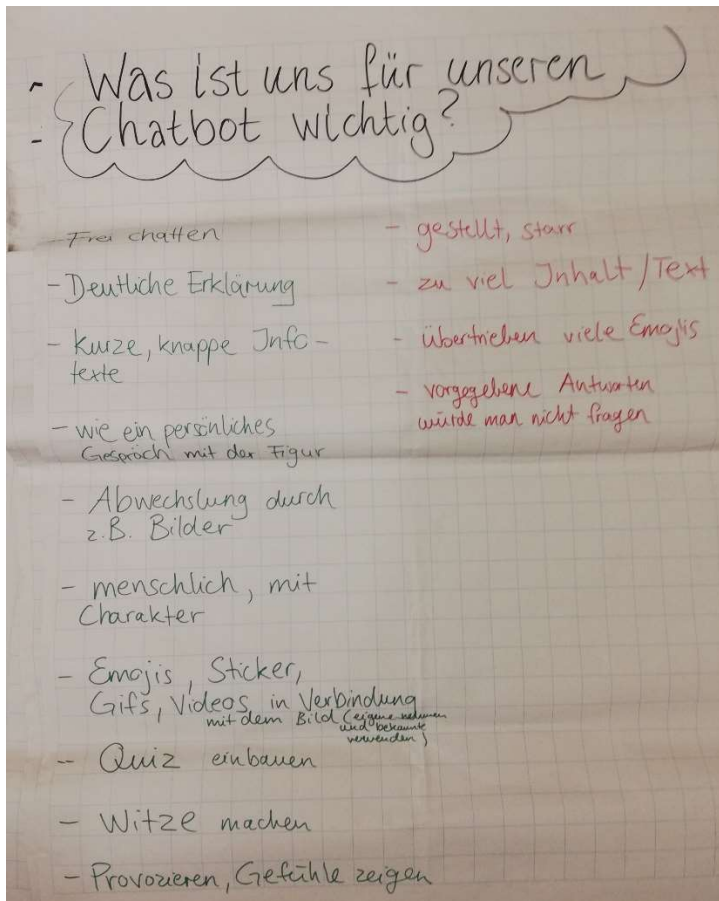 - Was ist uns für unseren
- Chatbot wichtig?
- Frei chatten
- Deutliche Erklärung
- Kurze, knappe Info-
texte
- wie ein persönliches
Gespräch mit der Figur
- Abwechslung durch
z.B. Bilder
- menschlich, mit
Charakter
- Emojis, Sticker,
Gifs, Videos, in Verbindung
mit dem Bild (eigene nehmen
und bekannte
verwenden)
- Quiz einbauen
- Witze machen
- Provozieren, Gefühle zeigen
- gestellt, starr
- zu viel Inhalt/Text
- übertrieben viele Emojis
- vorgegebene Antworten
würde man nicht fragen